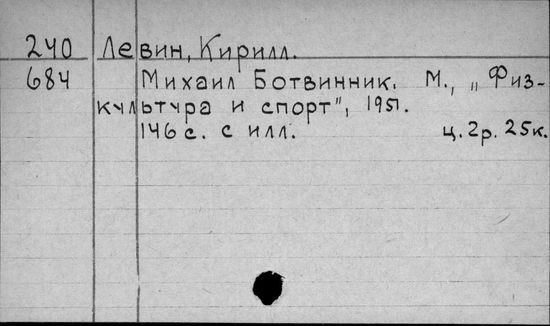 240 Левин, Кирилл.
684 Михаил Ботвинник. М., „Физ-
культура и спорт", 1951.
146 с. с илл. ц. 2р. 25к.